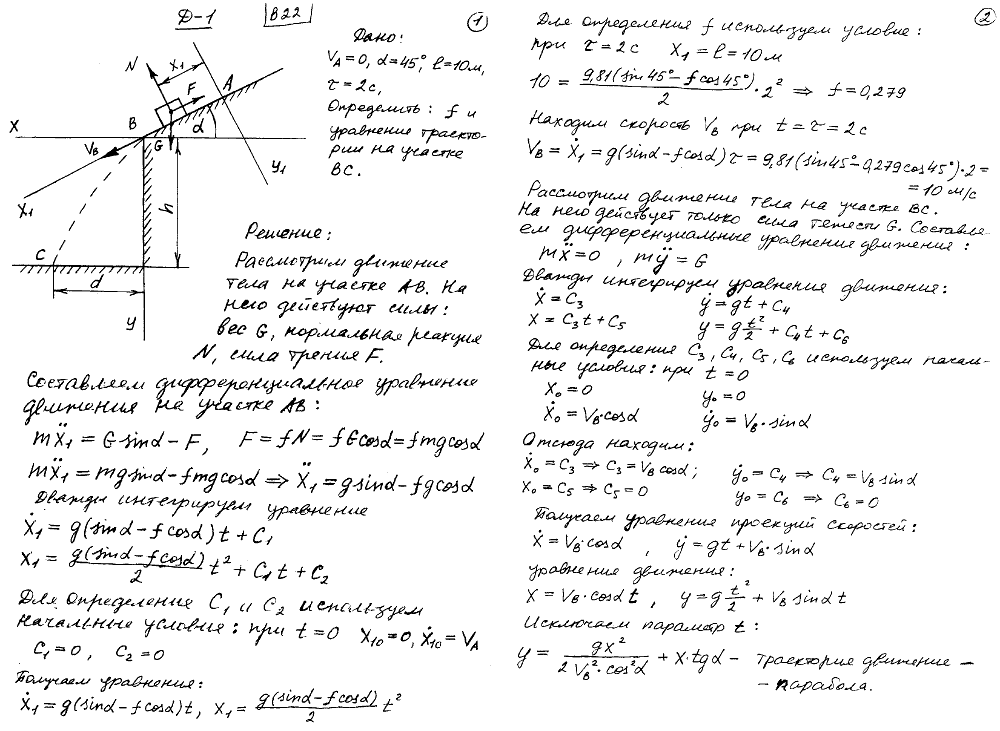 Д-1 В22 1
Дано:
V_A=0, α=45°, ℓ=10м,
τ=2с,
Определить: f и
уравнение траекто-
рии на участке
ВС.
N
X₁
F
A
X
B
α
V_B
G
Y₁
X₁
h
C
d
У
Решение:
Рассмотрим движение
тела на участке АВ. На
него действуют силы:
вес G, нормальная реакция
N, сила трения F.
Составляем дифференциальное уравнение
движения на участке АВ:
mẍ₁ = G sinα − F, F = fN = fGcosα = fmgcosα
mẍ₁ = mgsinα − fmgcosα ⇒ ẍ₁ = gsinα − fgcosα
Дважды интегрируем уравнение
ẋ₁ = g(sinα − fcosα)t + C₁
x₁ = g(sinα − fcosα)/2 t² + C₁t + C₂
Для определение C₁ и C₂ используем
начальные условие: при t=0 x₁₀=0, ẋ₁₀=V_A
C₁=0, C₂=0
Получаем уравнение:
ẋ₁ = g(sinα − fcosα)t, x₁ = g(sinα − fcosα)/2 t²
2
Для определения f используем условие:
при τ = 2с x₁ = ℓ = 10м
10 = 9,81(sin45° − fcos45°)/2 · 2² ⇒ f = 0,279
Находим скорость V_B при t = τ = 2с
V_B = ẋ₁ = g(sinα − fcosα)τ = 9,81(sin45° − 0,279cos45°)·2 =
= 10 м/с
Рассмотрим движение тела на участке ВС.
На него действует только сила тяжести G. Составля-
ем дифференциальные уравнение движения:
mẍ = 0 , mÿ = G
Дважды интегрируем уравнения движения:
ẋ = C₃ ẏ = gt + C₄
x = C₃t + C₅ y = g t²/2 + C₄t + C₆
Для определения C₃, C₄, C₅, C₆ используем началь-
ные условия: при t = 0
x₀ = 0 y₀ = 0
ẋ₀ = V_B·cosα ẏ₀ = V_B·sinα
Отсюда находим:
ẋ₀ = C₃ ⇒ C₃ = V_B cosα; ẏ₀ = C₄ ⇒ C₄ = V_B sinα
x₀ = C₅ ⇒ C₅ = 0 y₀ = C₆ ⇒ C₆ = 0
Получаем уравнение проекций скоростей:
ẋ = V_B·cosα , ẏ = gt + V_B·sinα
уравнение движения:
x = V_B·cosα t , y = g t²/2 + V_B sinα t
Исключаем параметр t:
y = gx²/(2V_B²·cos²α) + x·tgα – траектория движение –
– парабола.